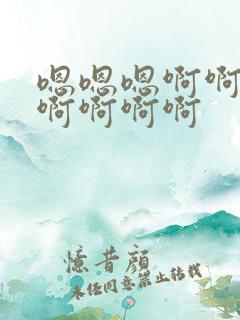 嗯嗯嗯啊啊
啊啊啊啊
憶昔顔
未经同意禁止转载